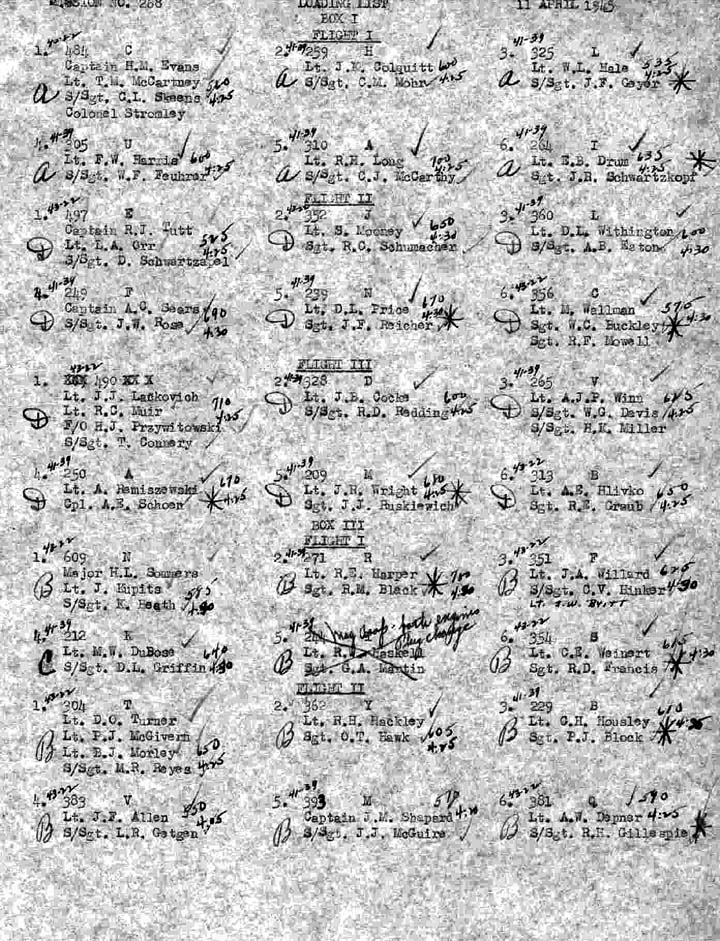 MISSION NO. 268 LOADING LIST 11 APRIL 1945
BOX I
FLIGHT I
43-22 41-39 41-39
1. 484 C 2. 259 H 3. 325 L
Captain H.M. Evans Lt. J.K. Colquitt 600 Lt. W.L. Hale 535
Lt. T.M. McCartney 580 A S/Sgt. C.M. Mohr 4:25 A S/Sgt. J.F. Geyer 4:25
A S/Sgt. C.L. Skeens 4:25
Colonel Stromley
41-39 41-39 41-39
4. 305 U 5. 310 A 6. 264 I
Lt. F.W. Harris 600 Lt. R.H. Long 700 Lt. E.B. Drum 635
A S/Sgt. W.F. Feuhrer 4:25 A S/Sgt. C.J. McCarthy 4:25 A S/Sgt. J.R. Schwartzkopf 4:25
FLIGHT II
43-22 41-39
1. 497 E 2. 352 J 3. 360 L
Captain R.J. Tutt Lt. S. Mooney 650 Lt. D.L. Withington 600
D Lt. L.A. Orr 525 D Sgt. R.C. Schumacher 4:30 D S/Sgt. A.B. Eaton 4:30
S/Sgt. D. Schwartzapel 4:25
41-39 41-39 43-22
4. 249 F 5. 239 N 6. 356 C
Captain A.C. Sears 690 Lt. D.L. Price 670 Lt. M. Wallman 575
D S/Sgt. J.W. Rose 4:30 D Sgt. J.F. Reicher 4:30 D Sgt. W.C. Buckley 4:30
Sgt. R.F. Mowell
FLIGHT III
43-22 41-39 41-39
1. XXX 490 XX X 2. 328 D 3. 265 V
Lt. J.J. Lackovich Lt. J.B. Cocke 600 Lt. A.J.P. Winn 625
D Lt. R.C. Muir 710 D S/Sgt. R.D. Redding 4:25 D S/Sgt. W.G. Davis 4:25
F/O H.J. Przywitowski 4:25 S/Sgt. H.K. Miller
S/Sgt. T. Connery
41-39 41-39 43-22
4. 250 A 5. 209 M 6. 313 B
Lt. A. Remiszewski 670 Lt. J.R. Wright 680 Lt. A.E. Hlivko 650
D Cpl. A.E. Schoen 4:25 D Sgt. J.J. Ruskiewich 4:25 D Sgt. R.E. Graub 4:25
BOX III
FLIGHT I
43-22 41-39 43-22
1. 609 N 2. 271 R 3. 351 F
Major H.L. Sommers Lt. R.E. Harper 700 Lt. J.A. Willard 625
B Lt. J. Kupits 595 B Sgt. R.M. Black 4:30 B S/Sgt. C.V. Hinker 4:30
S/Sgt. K. Heath 4:30 LT. J.W. BRITT
41-39 41-39 43-22
4. 212 K 5. Mag drop both engines 6. 354 S
Lt. M.W. DuBose 640 plug change Lt. C.E. Weinert 615
C S/Sgt. D.L. Griffin 4:30 Lt. Haskell Sgt. R.D. Francis 4:30
B Sgt. G.A. Martin B
FLIGHT II
43-22 43-22 41-39
1. 304 T 2. 362 Y 3. 229 B
Lt. D.O. Turner Lt. R.H. Hackley Lt. G.H. Housley 610
B Lt. P.J. McGivern B Sgt. O.T. Hawk 605 B Sgt. P.J. Block 4:25
Lt. E.J. Morley 650 4:25
S/Sgt. M.R. Reyes 4:25
43-22 41-39 43-22
4. 383 V 5. 393 M 570 6. 381 Q 590
Lt. J.F. Allen 550 Captain J.M. Shapard Lt. A.W. Depner 4:25
B S/Sgt. L.R. Getgen B S/Sgt. J.J. McGuire B S/Sgt. R.H. Gillespie